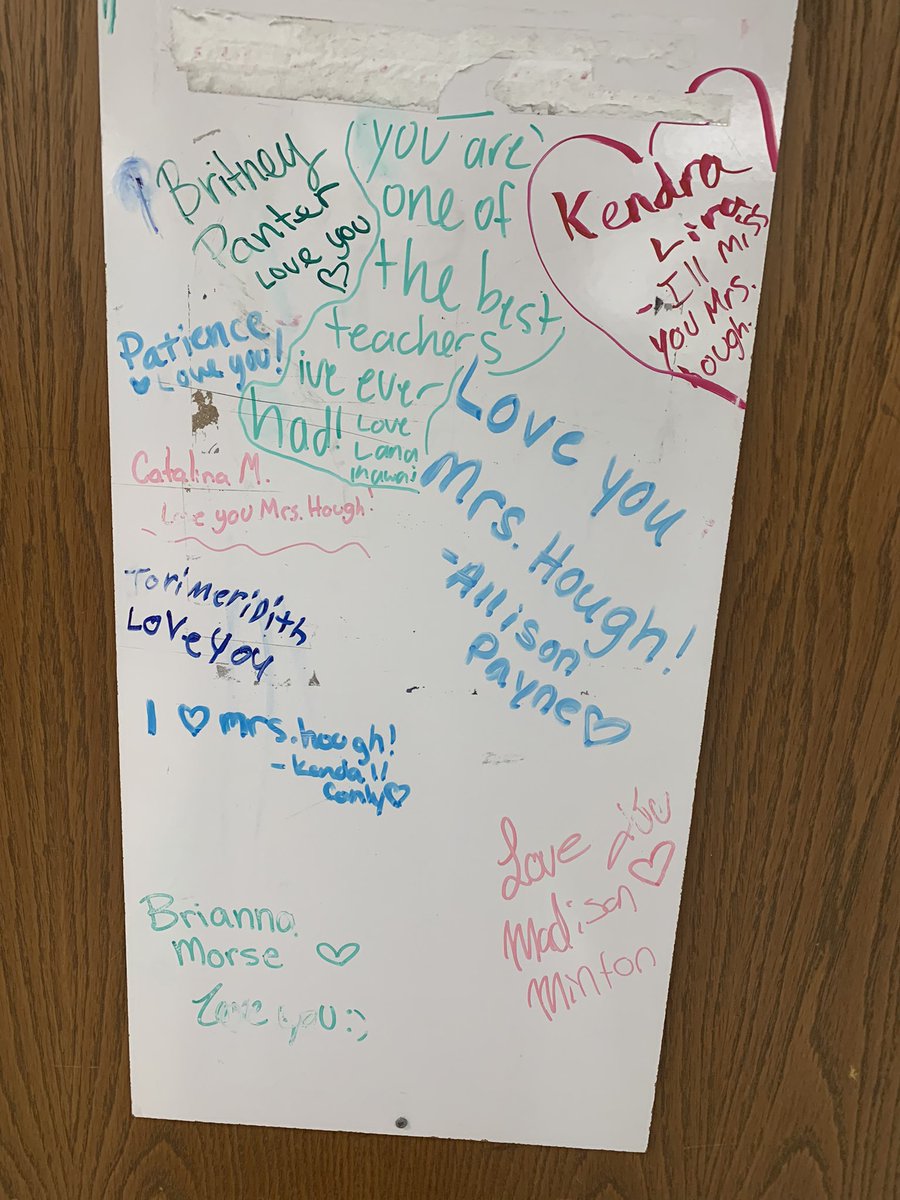 Britney
Panter
Love you
you are
one of
the best
teachers
ive ever
had!
Love
Lana
Kendra
Lira
- I'll miss
you Mrs.
Hough.
Patience
Love you!
Love you
Mrs. Hough!
- Allison
Payne
Catalina M.
Love you Mrs. Hough!
Tori meridith
Love you
I ♡ mrs. hough!
- Kendall
Conly
Love you
Madison
Minton
Brianna
Morse
Love you :)